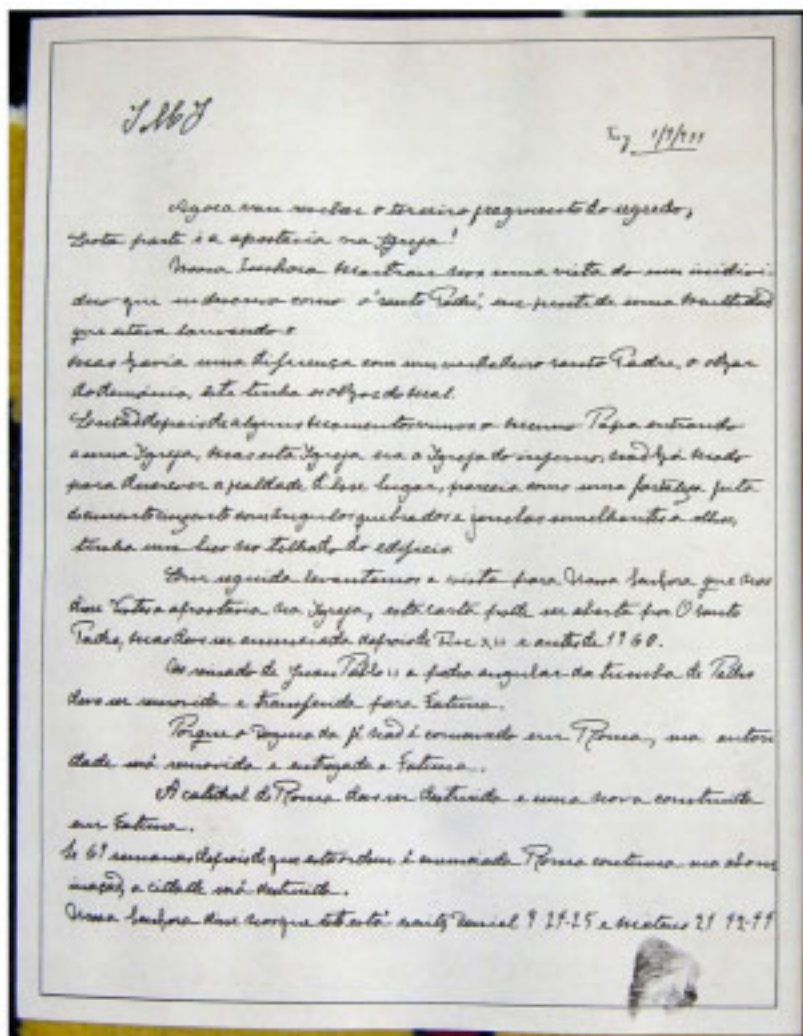 JMJ
Tuy 1/9/944
Agora vou revelar o terceiro fragmento do segredo,
Esta parte é a apostasia na Igreja!
Nossa Senhora mostrou nos uma vista do um individ
duo que descrevo como o 'santo Padre', em frente de uma multidão
que estava louvando o
Mas havia uma diferença com um verdadeiro santo Padre, o olhar
do demonio, este tinha os olhos do mal.
Então depois de alguns momentos vimos o mesmo Papa entrando
a uma Igreja, mas esta Igreja era a Igreja do inferno, não há modo
para descrever a fealdade d'esse lugar, parecia como uma fortaleza feita
de cimento cinzento com ângulos quebrados e janelas semelhantes a olhos,
tinha um bico no telhado do edificio
Em seguida levantamos a vista para Nossa Senhora que nos
disse Vistes a apostasia na Igreja, esta carta pode ser aberta por O santo
Padre, mas deve ser anunciada depois de Pio XII e antes de 1960.
No reinado de Juan Pablo II a pedra angular da tumba de Pedro
deve ser removida e transferida para Fatima.
Porque o dogma da fé não é conservado em Roma, sua autori
dade será removida e entregada a Fatima.
A catedral de Roma deve ser destruida e uma nova construida
em Fatima.
Se 69 semanas depois de que esta ordem é anunciada Roma continua sua abomi
nação, a cidade será destruida.
Nossa Senhora disse nos que está escrito, Daniel 9 24-25 e Mateus 21 42-44